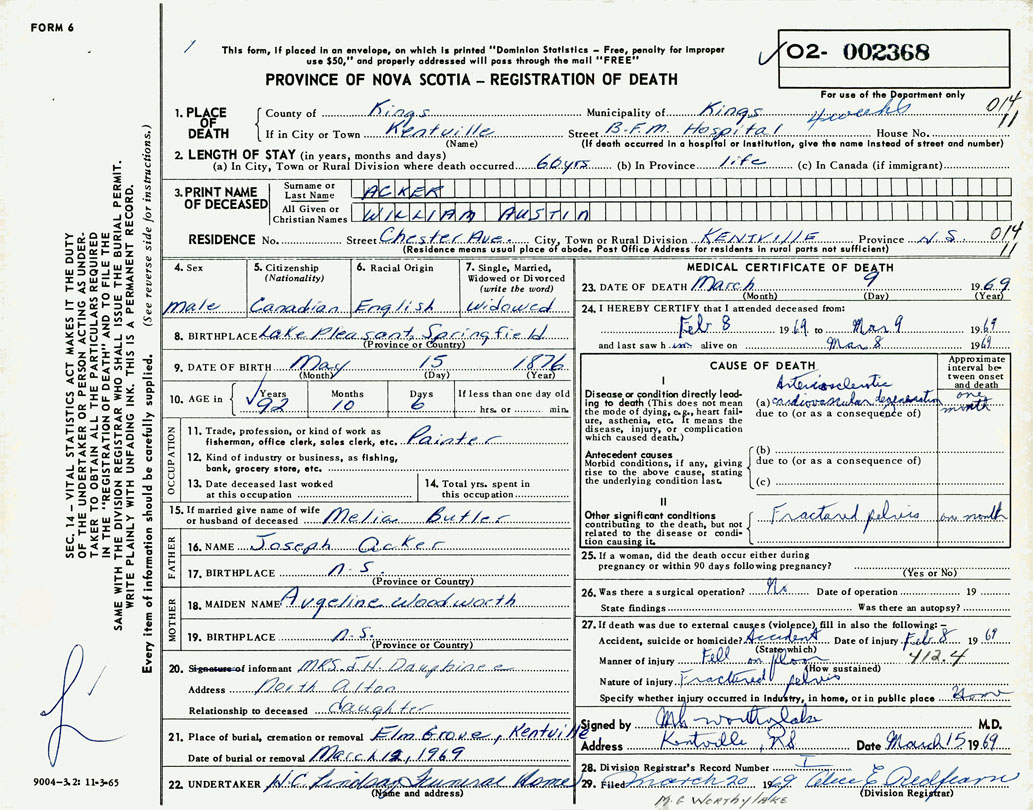 FORM 6
This form, if placed in an envelope, on which is printed "Dominion Statistics – Free, penalty for improper
use $50," and properly addressed will pass through the mail "FREE"
O2- 002368
PROVINCE OF NOVA SCOTIA – REGISTRATION OF DEATH
For use of the Department only
014
11
1. PLACE OF DEATH
County of Kings Municipality of Kings 4 weeks
If in City or Town Kentville Street B.F.M. Hospital House No.
(Name) (If death occurred in a hospital or Institution, give the name instead of street and number)
2. LENGTH OF STAY (in years, months and days)
(a) In City, Town or Rural Division where death occurred 60 yrs (b) In Province life (c) In Canada (if immigrant)
3. PRINT NAME OF DECEASED
Surname or Last Name ACKER
All Given or Christian Names WILLIAM AUSTIN
RESIDENCE No. Street Chester Ave. City, Town or Rural Division KENTVILLE Province N.S. 014
11
(Residence means usual place of abode. Post Office Address for residents in rural parts not sufficient)
4. Sex
male
5. Citizenship
(Nationality)
Canadian
6. Racial Origin
English
7. Single, Married,
Widowed or Divorced
(write the word)
widowed
8. BIRTHPLACE Lake Pleasant, Springfield
(Province or Country)
9. DATE OF BIRTH May 15 1876
(Month) (Day) (Year)
10. AGE in
Years Months Days If less than one day old
92 10 6 hrs. or min.
OCCUPATION
11. Trade, profession, or kind of work as
fisherman, office clerk, sales clerk, etc. Painter
12. Kind of industry or business, as fishing,
bank, grocery store, etc.
13. Date deceased last worked
at this occupation
14. Total yrs. spent in
this occupation
15. If married give name of wife
or husband of deceased Melia Butler
FATHER
16. NAME Joseph Acker
17. BIRTHPLACE N.S.
(Province or Country)
MOTHER
18. MAIDEN NAME Angeline Woodworth
19. BIRTHPLACE N.S.
(Province or Country)
20. Signature of informant MRS. J.H. Dauphinee
Address North Alton
Relationship to deceased daughter
21. Place of burial, cremation or removal Elm Grove, Kentville
Date of burial or removal March 12, 1969
22. UNDERTAKER H.C. Lindsay Funeral Home
(Name and address)
MEDICAL CERTIFICATE OF DEATH
23. DATE OF DEATH March 9 1969
(Month) (Day) (Year)
24. I HEREBY CERTIFY that I attended deceased from:
Feb 8 1969 to Mar 9 1969
and last saw him alive on Mar 8 1969
CAUSE OF DEATH
Approximate
interval between onset
and death
I
Disease or condition directly leading
to death (This does not mean
the mode of dying, e.g., heart failure,
asthenia, etc. It means the
disease, injury, or complication
which caused death.)
Arteriosclerotic
(a) cardiovascular degeneration one month
due to (or as a consequence of)
Antecedent causes
Morbid conditions, if any, giving
rise to the above cause, stating
the underlying condition last.
(b)
due to (or as a consequence of)
(c)
II
Other significant conditions
contributing to the death, but not
related to the disease or condition
causing it.
Fractured pelvis on month
25. If a woman, did the death occur either during
pregnancy or within 90 days following pregnancy?
(Yes or No)
26. Was there a surgical operation? No Date of operation 19
State findings Was there an autopsy?
27. If death was due to external causes (violence) fill in also the following:–
Accident, suicide or homicide? Accident Date of injury Feb 8 1969
(State which) 412.4
Manner of injury Fell on floor
(How sustained)
Nature of injury Fractured pelvis
Specify whether injury occurred in Industry, in home, or in public place Home
Signed by M E Worthylake M.D.
Address Kentville, NS Date March 15 1969
28. Division Registrar's Record Number
29. Filed March 20 1969 Alice E Redfearn
(Division Registrar)
M. E WORTHYLAKE
SEC. 14 – VITAL STATISTICS ACT MAKES IT THE DUTY
OF THE UNDERTAKER OR PERSON ACTING AS UNDERTAKER
TO OBTAIN ALL THE PARTICULARS REQUIRED
IN THE "REGISTRATION OF DEATH" AND TO FILE THE
SAME WITH THE DIVISION REGISTRAR WHO SHALL ISSUE THE BURIAL PERMIT.
WRITE PLAINLY WITH UNFADING INK. THIS IS A PERMANENT RECORD.
Every item of information should be carefully supplied. (See reverse side for instructions.)
9004–3.2: 11-3-65